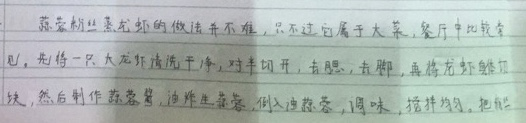 蒜蓉粉丝蒸龙虾的做法并不难，只不过它属于大菜，餐厅中比较常
见。先将一只大龙虾清洗干净，对半切开，去腮，去脚，再将龙虾斩切
块，然后制作蒜蓉酱，油炸生蒜蓉，倒入油蒜蓉，调味，搅拌均匀。把粉丝